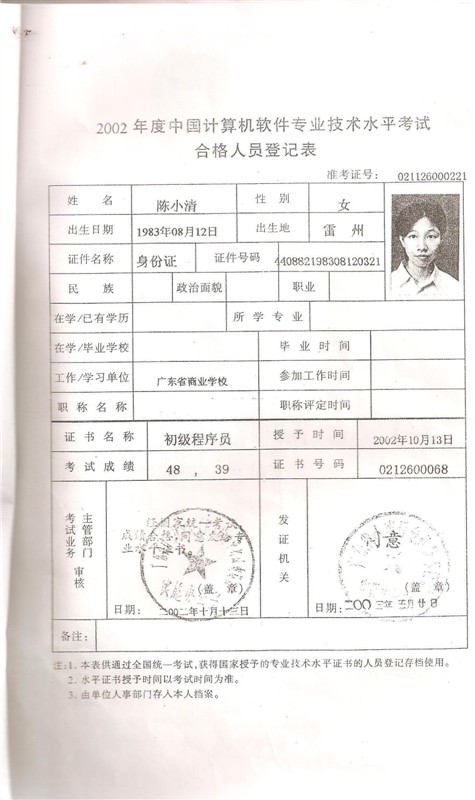 2002 年度中国计算机软件专业技术水平考试
合格人员登记表
准考证号： 021126000221
姓 名 陈小清 性 别 女
出生日期 1983年08月12日 出生地 雷 州
证件名称 身份证 证件号码 440882198308120321
民 族 政治面貌 职业
在学/已有学历 所 学 专 业
在学/毕业学校 毕 业 时 间
工作/学习单位 广东省商业学校 参加工作时间
职 称 名 称 职称评定时间
证 书 名 称 初级程序员 授 予 时 间 2002年10月13日
考 试 成 绩 48 ，39 证 书 号 码 0212600068
考试业务主管部门审核
经国家统一考试
成绩合格，同意
业水平证书。
（盖 章）
日期：二00二年十月十三日
发证机关
同意
（盖 章）
日期：二00三年
备注：
注：1. 本表供通过全国统一考试，获得国家授予的专业技术水平证书的人员登记存档使用。
2. 水平证书授予时间以考试时间为准。
3. 由单位人事部门存入本人档案。